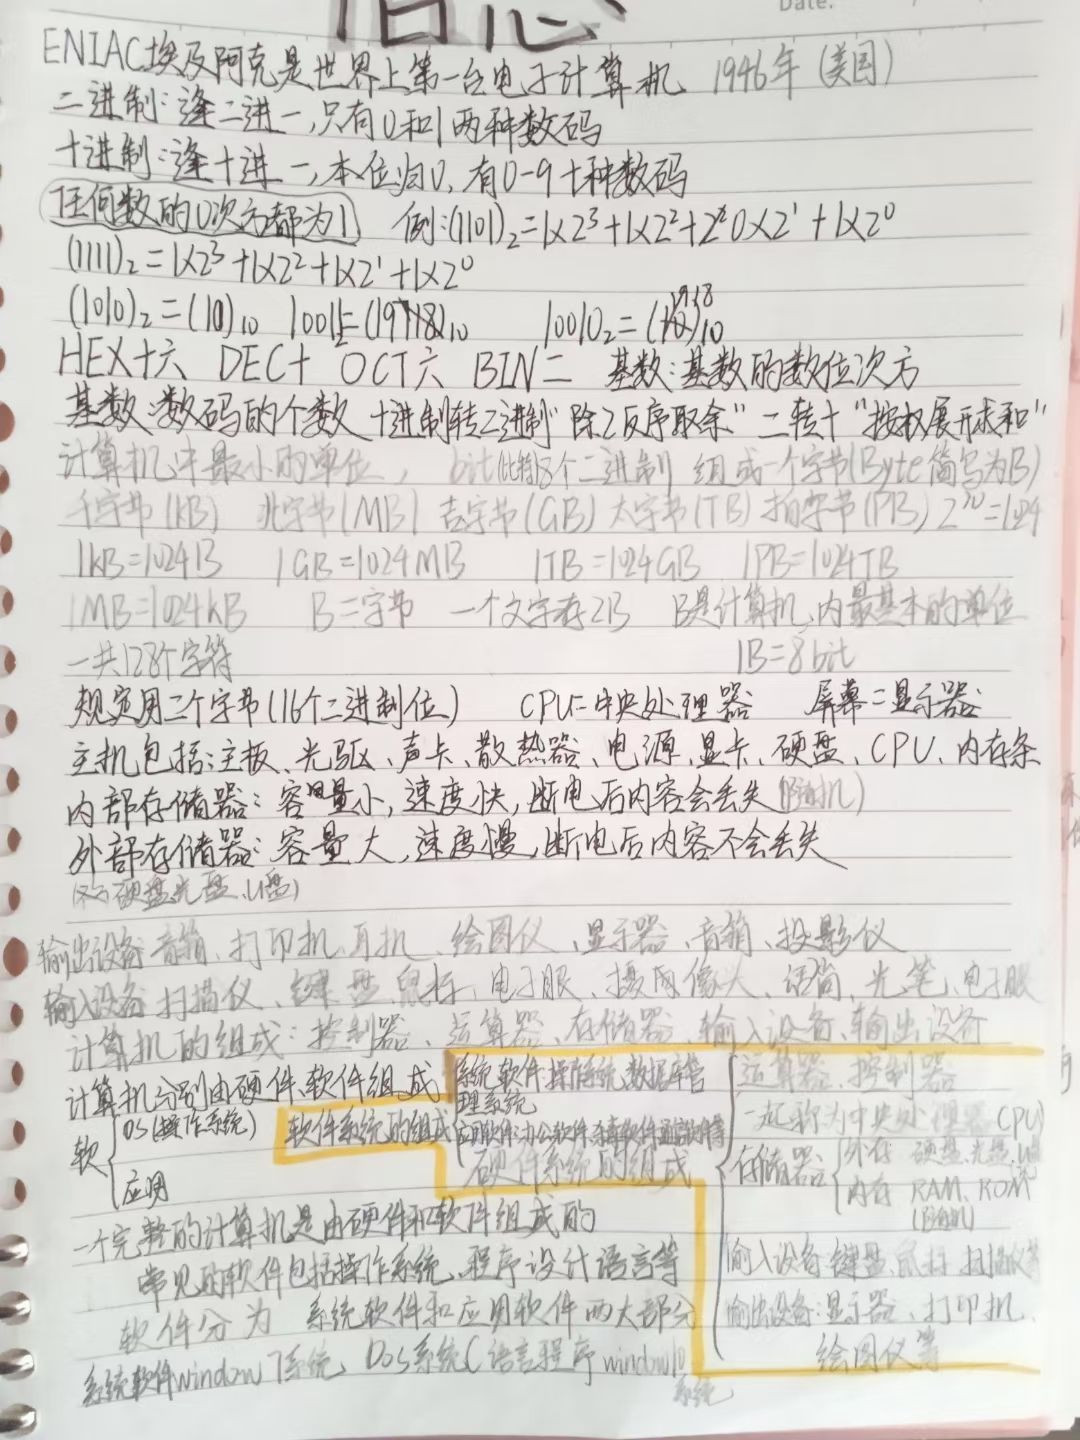 信息
Date.
ENIAC埃及阿克是世界上第一台电子计算机 1946年(美国)
二进制:逢二进一,只有0和1两种数码
十进制:逢十进一,本位归0,有0-9十种数码
任何数的0次方都为1 例:(1101)₂=1×2³+1×2²+0×2¹+1×2⁰
(1111)₂=1×2³+1×2²+1×2¹+1×2⁰
(1010)₂=(10)₁₀ 10011₂=(19)₁₀ 10010₂=(18)₁₀
HEX十六 DEC十 OCT六 BIN二 基数:基数的数位次方
基数:数码的个数 十进制转二进制"除2反序取余" 二转十"按权展开求和"
计算机中最小的单位, bit(比特)8个二进制 组成一个字节(Byte简写为B)
千字节(KB) 兆字节(MB) 吉字节(GB) 太字节(TB) 拍字节(PB) 2¹⁰=1024
1KB=1024B 1GB=1024MB 1TB=1024GB 1PB=1024TB
1MB=1024KB B=字节 一个文字存2B B是计算机内最基本的单位
一共128个字符 1B=8bit
规定用二个字节(16个二进制位) CPU=中央处理器 屏幕=显示器
主机包括:主板、光驱、声卡、散热器、电源、显卡、硬盘、CPU、内存条
内部存储器:容量小,速度快,断电后内容会丢失(随机)
外部存储器:容量大,速度慢,断电后内容不会丢失
硬盘光盘、U盘)
输出设备 音箱、打印机、耳机、绘图仪、显示器、音箱、投影仪
输入设备 扫描仪、键盘、鼠标、电子眼、摄像头、话筒、光笔、电子眼
计算机的组成:控制器、运算器、存储器、输入设备、输出设备
计算机分别由硬件、软件组成
软 OS(操作系统)
应用
软件系统的组成 系统软件:操作系统、数据库管理系统
应用软件:办公软件、杀毒软件、通讯软件等
硬件系统的组成
运算器、控制器
一起称为中央处理器(CPU)
存储器 外存 硬盘、光盘、U盘
内存 RAM、ROM
(随机)
输入设备 键盘、鼠标、扫描仪等
输出设备:显示器、打印机、
绘图仪等
一个完整的计算机是由硬件和软件组成的
常见的软件包括操作系统、程序设计语言等
软件分为 系统软件和应用软件两大部分
系统软件window7系统、Dos系统C语言程序window10
系统